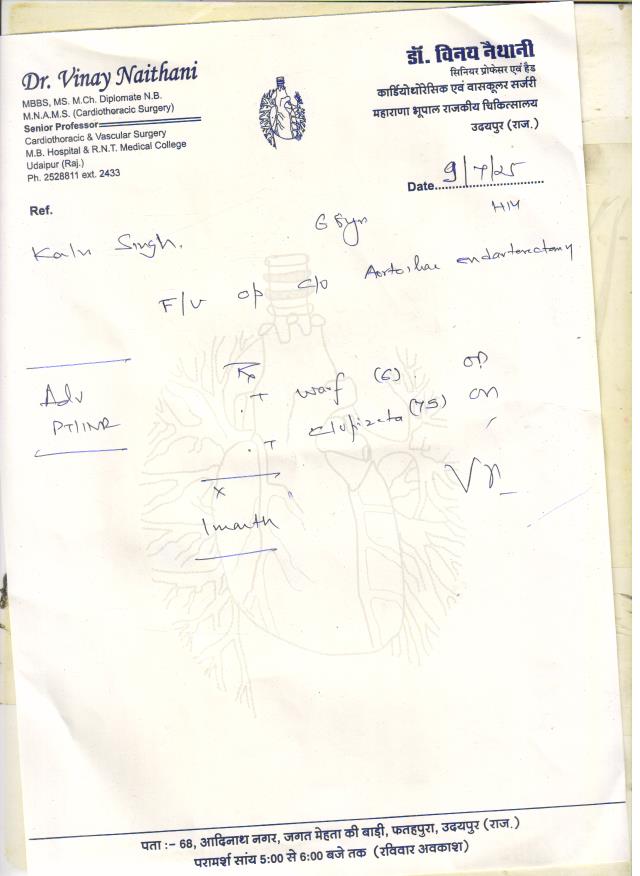 Dr. Vinay Naithani
MBBS, MS. M.Ch. Diplomate N.B.
M.N.A.M.S. (Cardiothoracic Surgery)
Senior Professor
Cardiothoracic & Vascular Surgery
M.B. Hospital & R.N.T. Medical College
Udaipur (Raj.)
Ph. 2528811 ext. 2433
डॉ. विनय नैथानी
सिनियर प्रोफेसर एवं हैड
कार्डियोथोरेसिक एवं वासकूलर सर्जरी
महाराणा भूपाल राजकीय चिकित्सालय
उदयपुर (राज.)
Date 9/7/25
Ref.
Kalu Singh.
68yr
F/U op c/o Aortoiliac endarterectomy
Adv
PT/INR
Rx
. T warf (6) OD
. T (75) on
x
1 month
पता :– 68, आदिनाथ नगर, जगत मेहता की बाड़ी, फतहपुरा, उदयपुर (राज.)
परामर्श सांय 5:00 से 6:00 बजे तक (रविवार अवकाश)